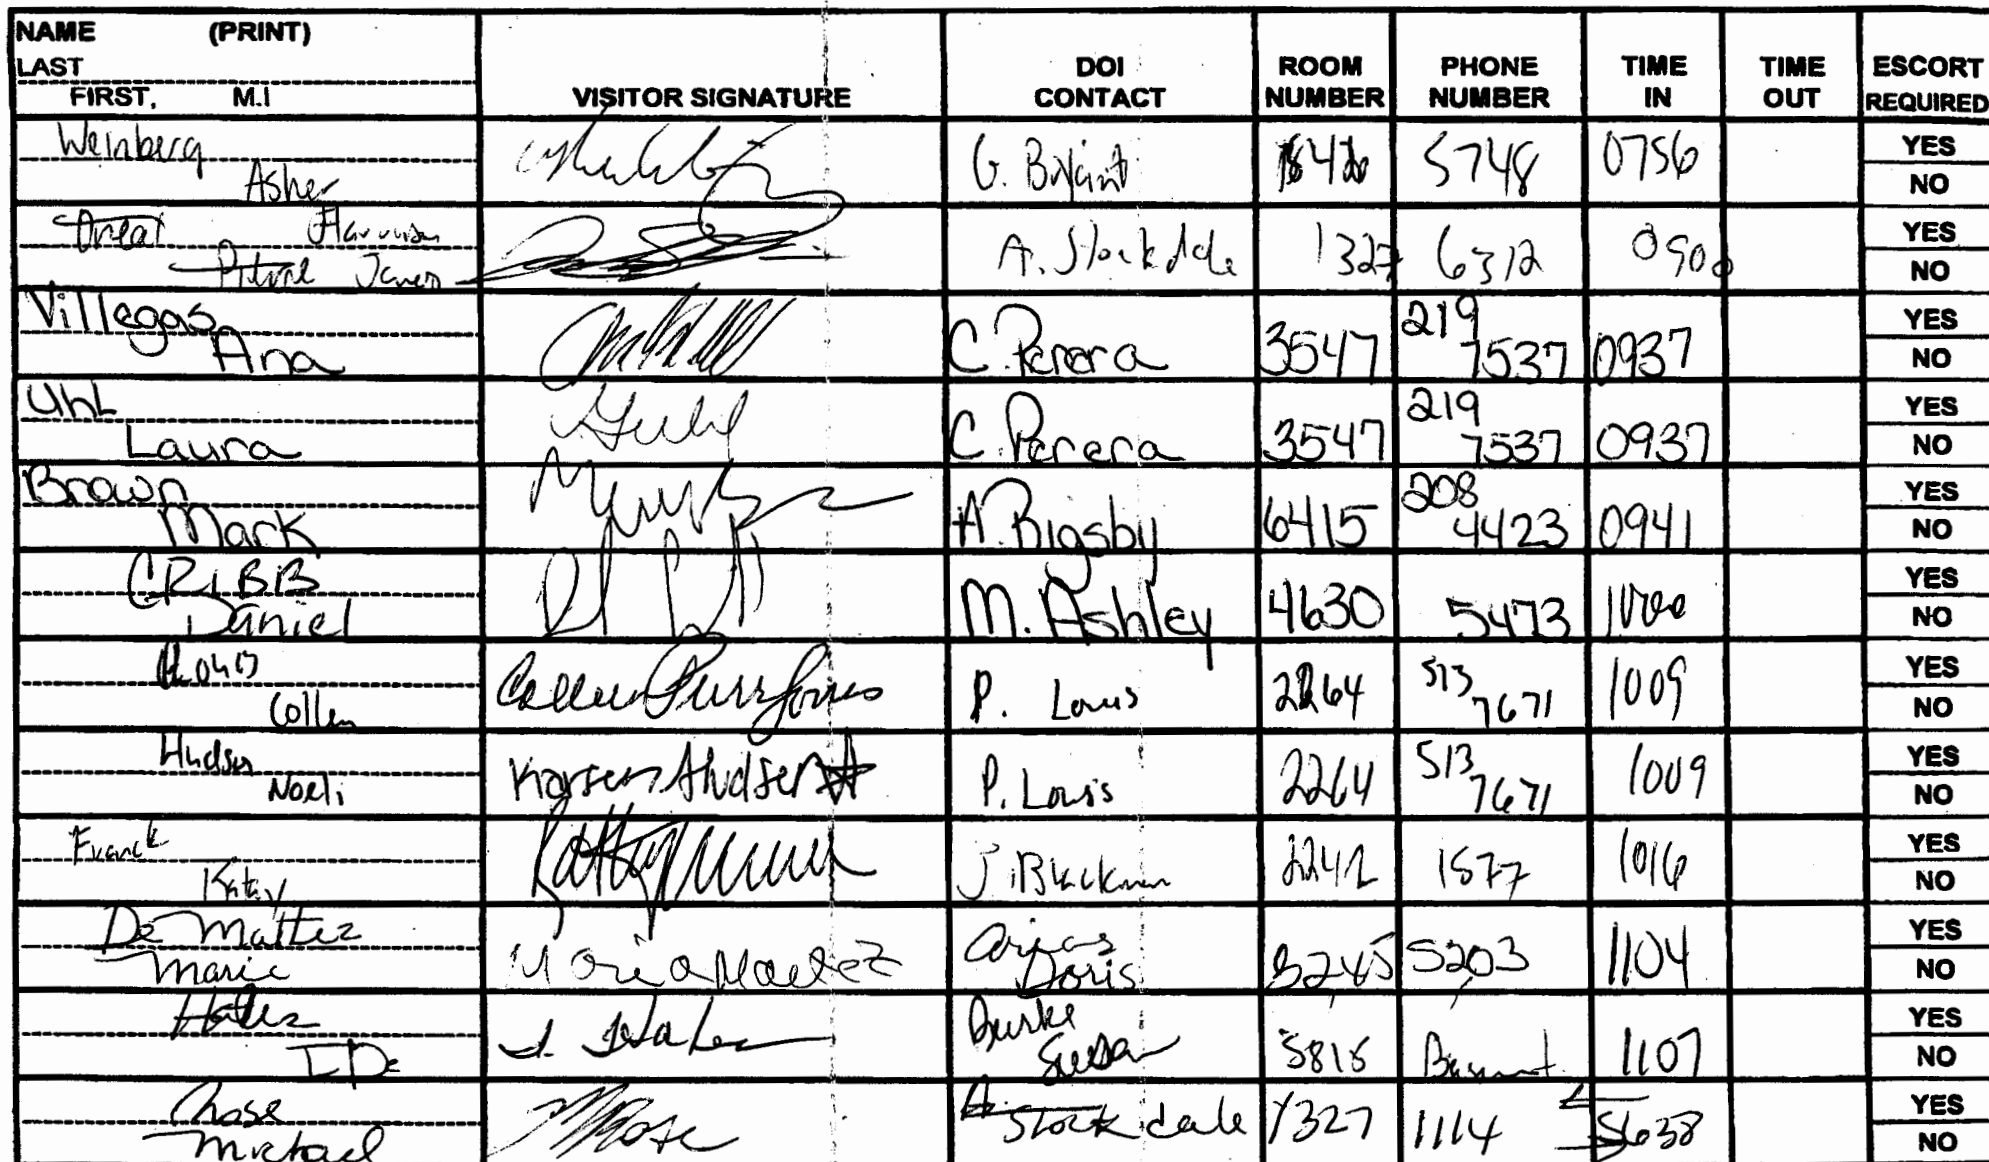 NAME (PRINT)
LAST
FIRST, M.I
VISITOR SIGNATURE
DOI CONTACT
ROOM NUMBER
PHONE NUMBER
TIME IN
TIME OUT
ESCORT REQUIRED
Weinberg
Asher
G. Bryant 5748 0756
YES
NO
Harrison
James
A. Stockdale 1327 6312 0900
YES
NO
Villegas
Ana
C. Perera 3547 219 7537 0937
YES
NO
Uhl
Laura
C. Perera 3547 219 7537 0937
YES
NO
Brown
Mark
A. Bigsby 6415 208 4423 0941
YES
NO
CRIBB
Daniel
M. Ashley 4630 5473 1000
YES
NO
Collen
P. Louis 2264 513 7671 1009
YES
NO
Hudson
Noeli
Karsen Hudson
P. Louis 2264 513 7671 1009
YES
NO
Franck
Katay
J. Blackman 2242 1577 1016
YES
NO
De Mattez
Maria
Arias
Doris
3245 5203 1104
YES
NO
Burke
Susan
5815 Basement 1107
YES
NO
Rose
Michael
M Rose
A. Stockdale 1327 1114
YES
NO